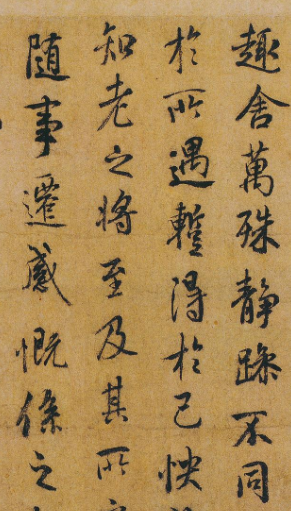 趣舍萬殊静躁不同
於所遇蹔得於己怏
知老之將至及其所
随事遷感慨係之